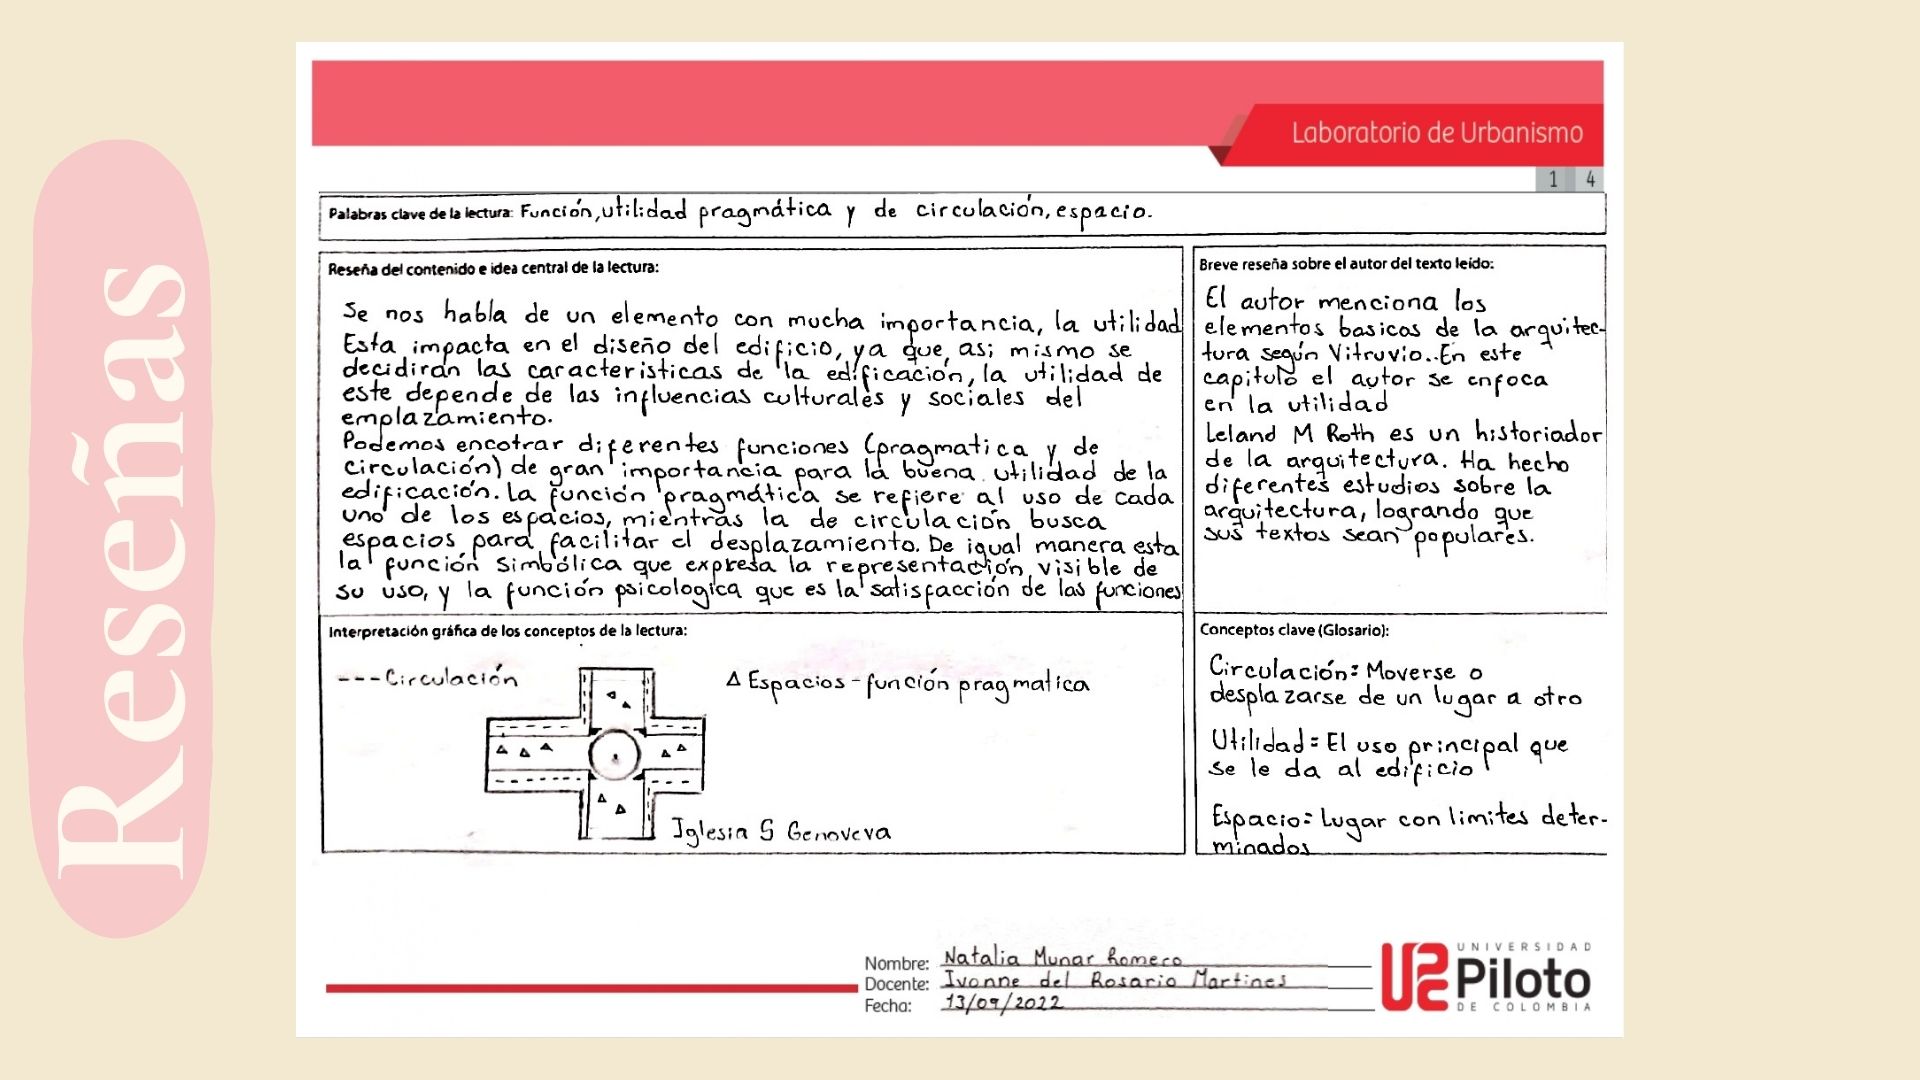 Reseñas
Laboratorio de Urbanismo
1 4
Palabras clave de la lectura: Función, utilidad pragmática y de circulación, espacio.
Reseña del contenido e idea central de la lectura:
Se nos habla de un elemento con mucha importancia, la utilidad
Esta impacta en el diseño del edificio, ya que, asi mismo se
decidirán las caracteristicas de la edificación, la utilidad de
este depende de las influencias culturales y sociales del
emplazamiento.
Podemos encotrar diferentes funciones (pragmatica y de
circulación) de gran importancia para la buena utilidad de la
edificación. La función pragmática se refiere al uso de cada
uno de los espacios, mientras la de circulación busca
espacios para facilitar el desplazamiento. De igual manera esta
la función Simbólica que expresa la representación visible de
su uso, y la función psicologica que es la satisfacción de las funciones
Breve reseña sobre el autor del texto leído:
El autor menciona los
elementos basicos de la arquitec-
tura según Vitruvio..En este
capitulo el autor se enfoca
en la utilidad
Leland M Roth es un historiador
de la arquitectura. Ha hecho
diferentes estudios sobre la
arquitectura, logrando que
sus textos sean populares.
Interpretación gráfica de los conceptos de la lectura:
---Circulación
Δ Espacios-función pragmatica
Iglesia S Genoveva
Conceptos clave (Glosario):
Circulación: Moverse o
desplazarse de un lugar a otro
Utilidad: El uso principal que
se le da al edificio
Espacio: Lugar con limites deter-
minados
Nombre: Natalia Munar Romero
Docente: Ivonne del Rosario Martines
Fecha: 13/09/2022
UNIVERSIDAD
Piloto
DE COLOMBIA